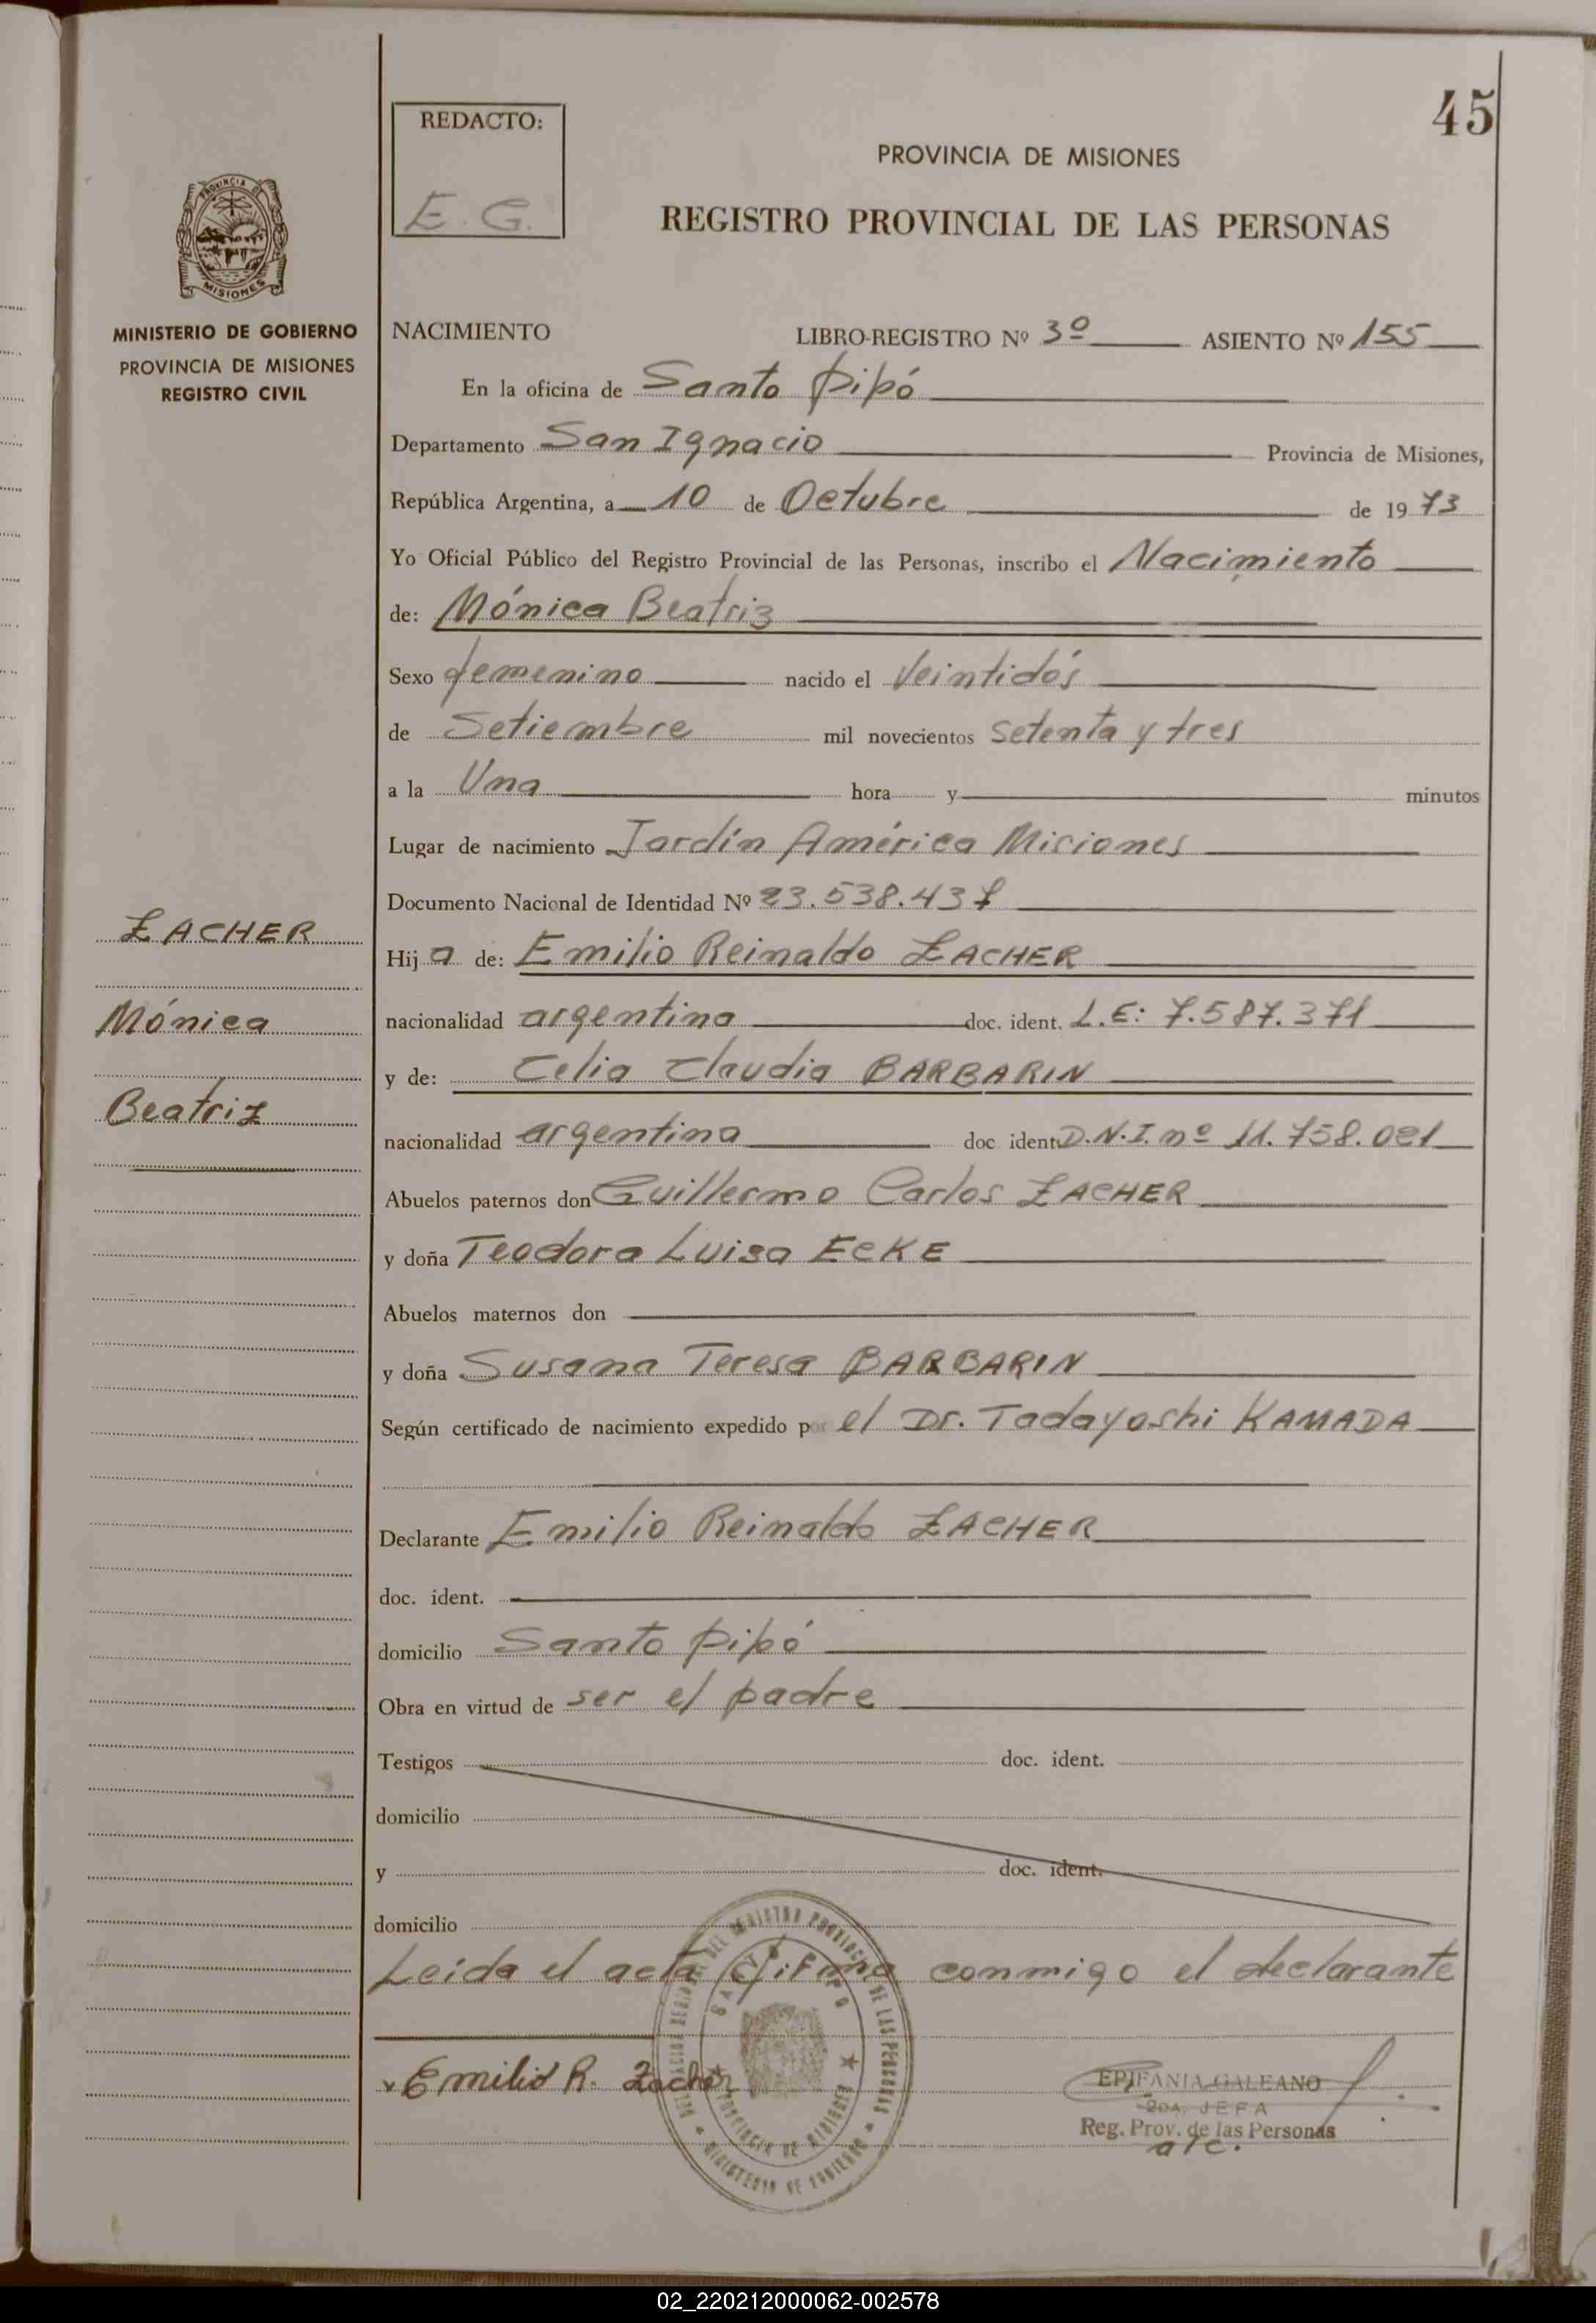 45
REDACTO:
E. G.
PROVINCIA DE MISIONES
REGISTRO PROVINCIAL DE LAS PERSONAS
PROVINCIA DE
MISIONES
MINISTERIO DE GOBIERNO
PROVINCIA DE MISIONES
REGISTRO CIVIL
NACIMIENTO LIBRO-REGISTRO Nº 3º ASIENTO Nº 155
En la oficina de Santo Pipó
Departamento San Ignacio Provincia de Misiones,
República Argentina, a 10 de Octubre de 1973
Yo Oficial Público del Registro Provincial de las Personas, inscribo el Nacimiento
de: Mónica Beatriz
Sexo femenino nacido el Veintidós
de Setiembre mil novecientos setenta y tres
a la Una hora y minutos
Lugar de nacimiento Jardín América Misiones
Documento Nacional de Identidad Nº 23.538.437
ZACHER
Mónica
Beatriz
Hija de: Emilio Reinaldo ZACHER
nacionalidad argentina doc. ident. L.E: 7.587.371
y de: Celia Claudia BARBARIN
nacionalidad argentina doc ident. D.N.I. nº 11.758.021
Abuelos paternos don Guillermo Carlos ZACHER
y doña Teodora Luisa ECKE
Abuelos maternos don
y doña Susana Teresa BARBARIN
Según certificado de nacimiento expedido por el Dr. Tadayoshi KAMADA
Declarante Emilio Reinaldo ZACHER
doc. ident.
domicilio Santo Pipó
Obra en virtud de ser el padre
Testigos doc. ident.
domicilio
y doc. ident.
domicilio
Leida el acta firma conmigo el declarante
Emilio R. Zacher
SANTO PIPO
PROVINCIA DE MISIONES
MINISTERIO DE GOBIERNO
EPIFANIA GALEANO
2DA. JEFA
Reg. Prov. de las Personas
a/c.
02_220212000062-002578